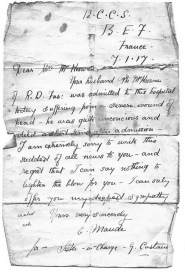 12. C.C.S.
B.E.F.
France
7.1.17.
Dear Mrs
Your husband
R.D. Fus: was admitted to this hospital
suffering from severe wound of
head - he was quite unconscious and
died a short time after admission
I am extremely sorry to write this
saddest of all news to you - and
regret that I can say nothing to
lighten the blow for you - I can only
offer you my deepest sympathy
Yours very sincerely
E. Maude
for - Sister-in-Charge - G.